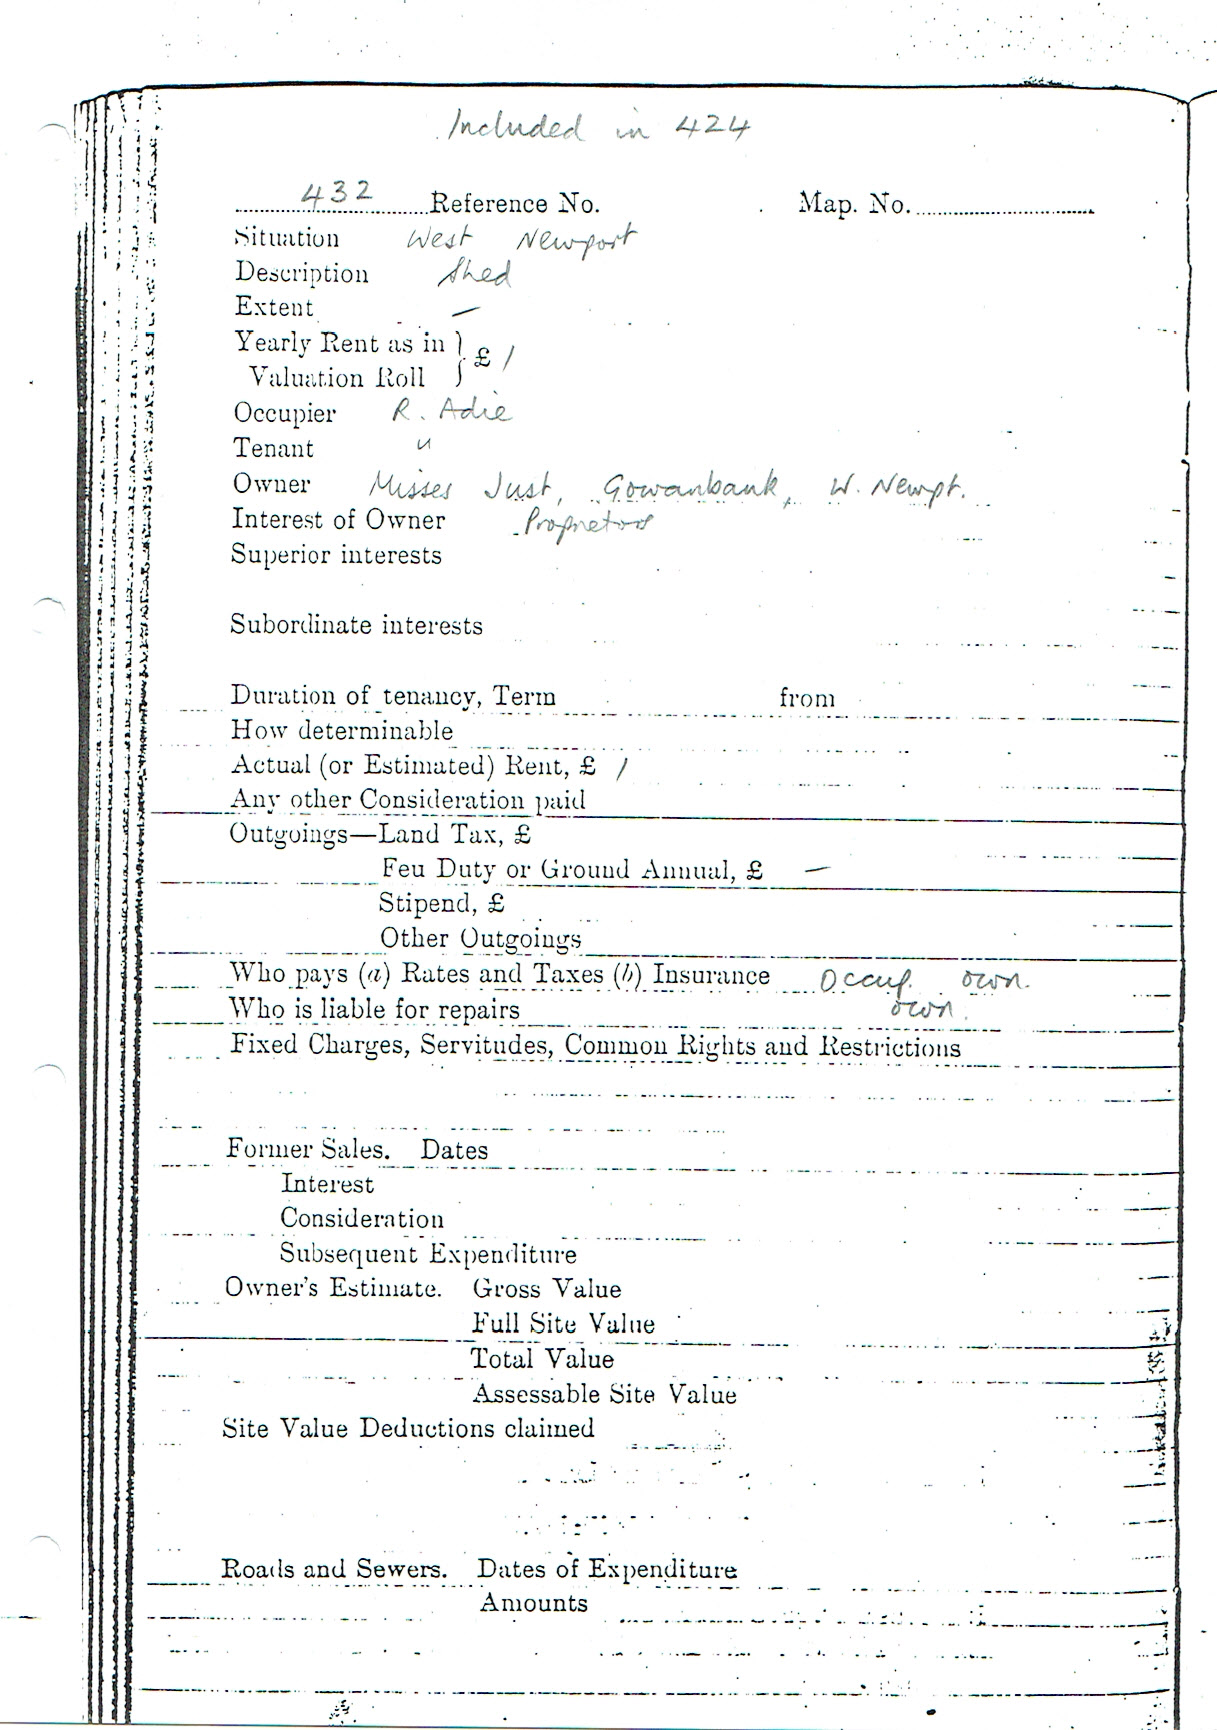 Included in 424
432 Reference No. Map. No.
Situation West Newport
Description Shed
Extent —
Yearly Rent as in
Valuation Roll } £ 1
Occupier R. Adie
Tenant "
Owner Misses Just, Gowanbank, W. Newpt.
Interest of Owner Proprietors
Superior interests
Subordinate interests
Duration of tenancy, Term from
How determinable
Actual (or Estimated) Rent, £ 1
Any other Consideration paid
Outgoings—Land Tax, £
Feu Duty or Ground Annual, £ —
Stipend, £
Other Outgoings
Who pays (a) Rates and Taxes (b) Insurance Occup. own.
Who is liable for repairs own.
Fixed Charges, Servitudes, Common Rights and Restrictions
Former Sales. Dates
Interest
Consideration
Subsequent Expenditure
Owner's Estimate. Gross Value
Full Site Value
Total Value
Assessable Site Value
Site Value Deductions claimed
Roads and Sewers. Dates of Expenditure
Amounts